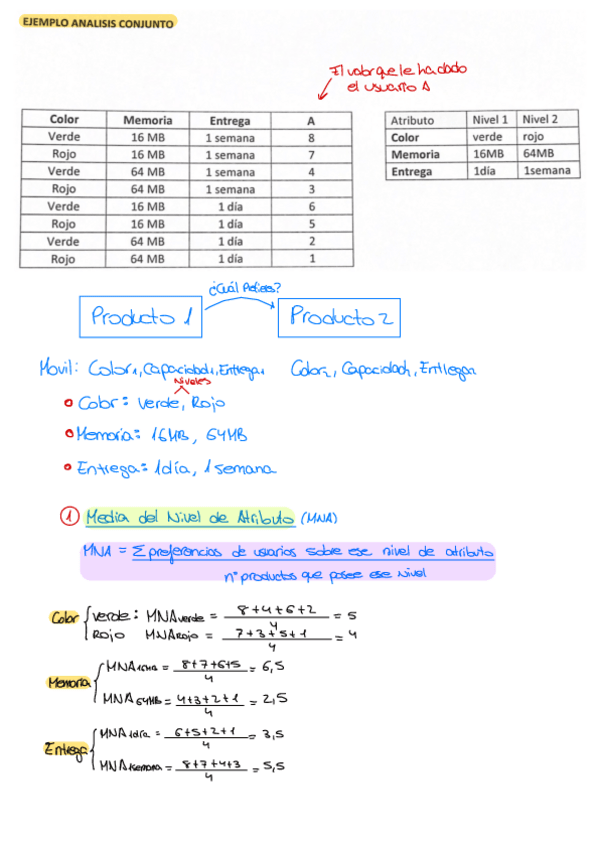 EJEMPLO ANALISIS CONJUNTO
El valor que le ha dado
el usuario A
Color Memoria Entrega A
Verde 16 MB 1 semana 8
Rojo 16 MB 1 semana 7
Verde 64 MB 1 semana 4
Rojo 64 MB 1 semana 3
Verde 16 MB 1 día 6
Rojo 16 MB 1 día 5
Verde 64 MB 1 día 2
Rojo 64 MB 1 día 1
Atributo Nivel 1 Nivel 2
Color verde rojo
Memoria 16MB 64MB
Entrega 1día 1semana
¿Cuál prefieres?
Producto 1 Producto 2
Movil: Color1, Capacidad1, Entrega1 Color2, Capacidad2, Entrega2
Niveles
Color: Verde, Rojo
Memoria: 16MB, 64MB
Entrega: 1día, 1 semana
1 Media del Nivel de Atributo (MNA)
MNA = Σ preferencias de usuarios sobre ese nivel de atributo
nº productos que posee ese nivel
Color { verde: MNA verde = 8+4+6+2 / 4 = 5
Rojo MNA Rojo = 7+3+5+1 / 4 = 4
Memoria { MNA 16MB = 8+7+6+5 / 4 = 6,5
MNA 64MB = 4+3+2+1 / 4 = 2,5
Entrega { MNA 1día = 6+5+2+1 / 4 = 3,5
MNA 1semana = 8+7+4+3 / 4 = 5,5